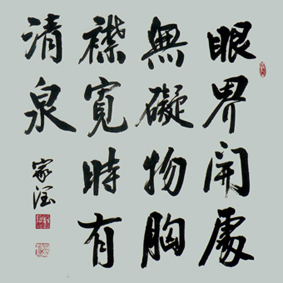 眼界開處
無礙物胸
襟寬時有
清泉
家瀅